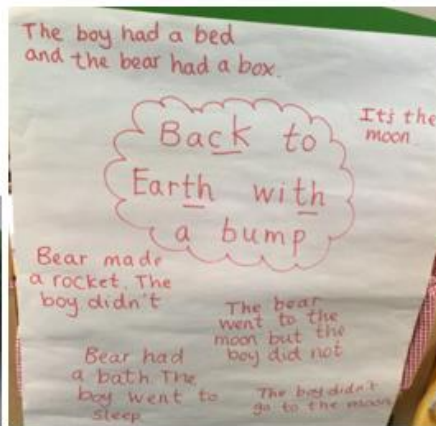 The boy had a bed
and the bear had a box.
It's the
moon.
Back to
Earth with
a bump
Bear made
a rocket. The
boy didn't
The bear
went to the
moon but the
boy did not
Bear had
a bath. The
boy went to
sleep
The boy didn't
go to the moon